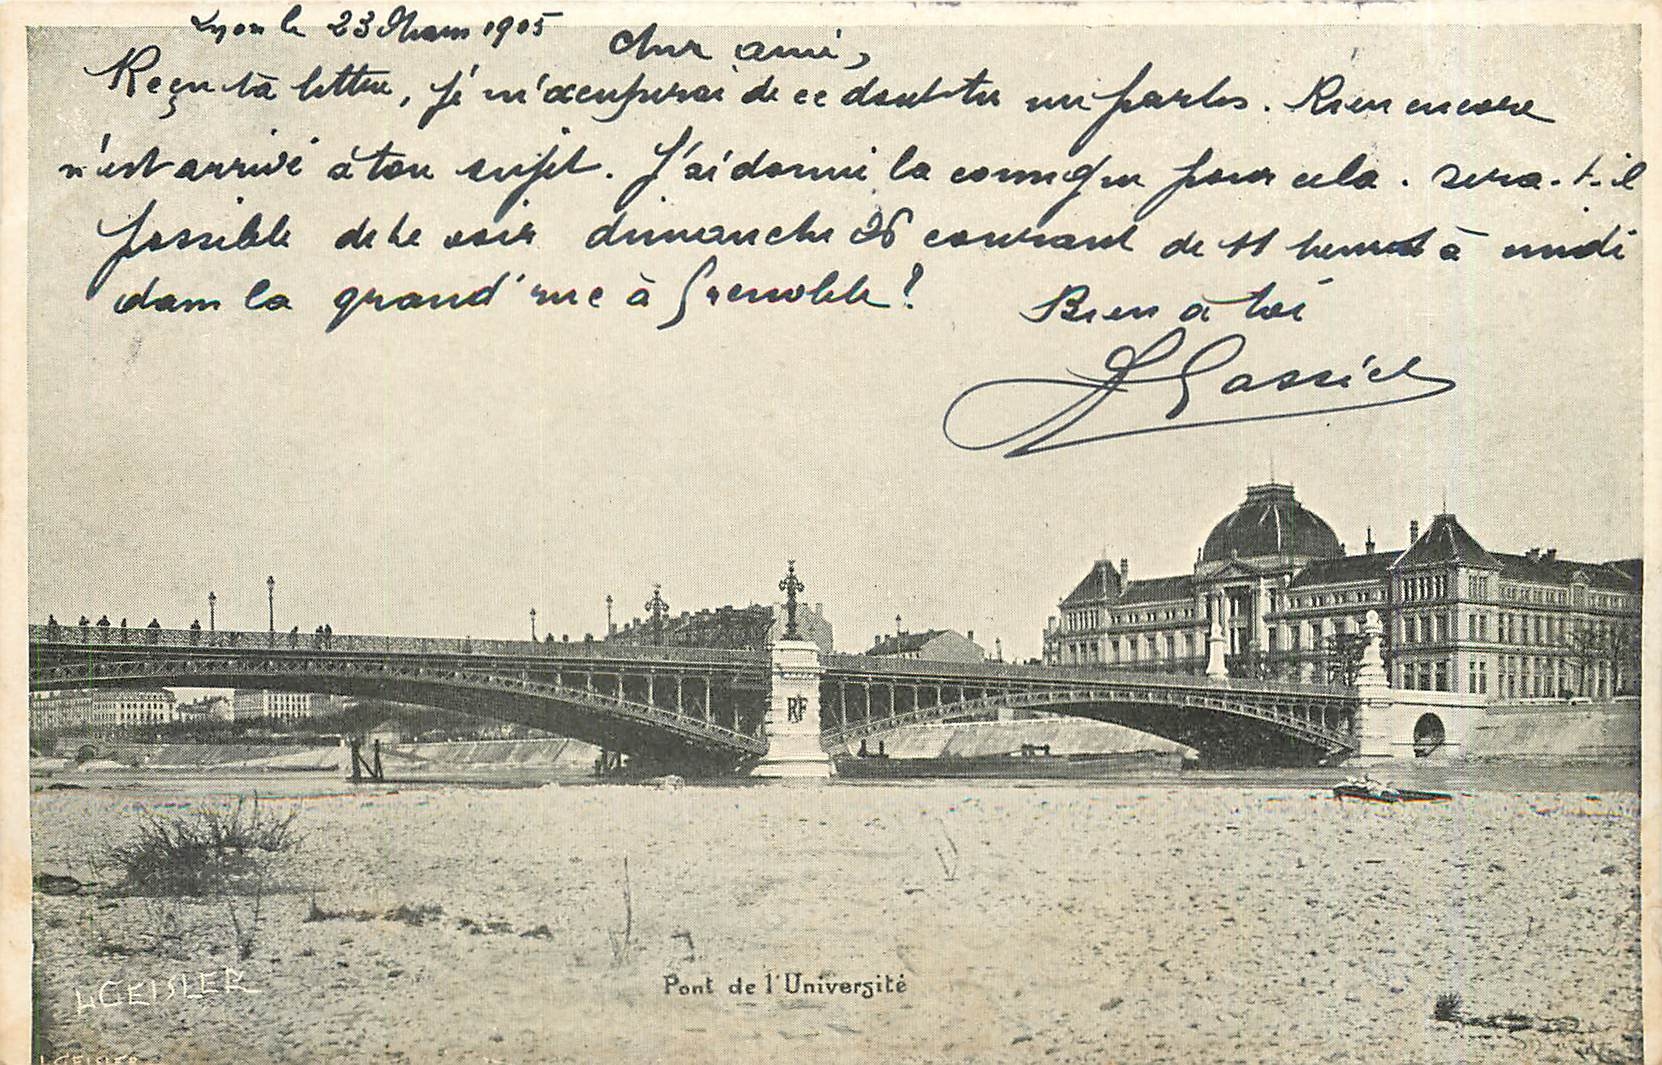 Lyon le 23 Mars 1905
Cher ami,
Reçu ta lettre, je m'occuperai de ce dont tu me parles. Rien encore
n'est arrivé à ton sujet. J'ai donné la consigne pour cela. Sera-t-il
possible de te voir dimanche 26 courant de 11 heures à midi
dans la grand'rue à Grenoble?
Bien à toi
Gassiel
RF
Pont de l'Université
LGEISLER
L GEISLER